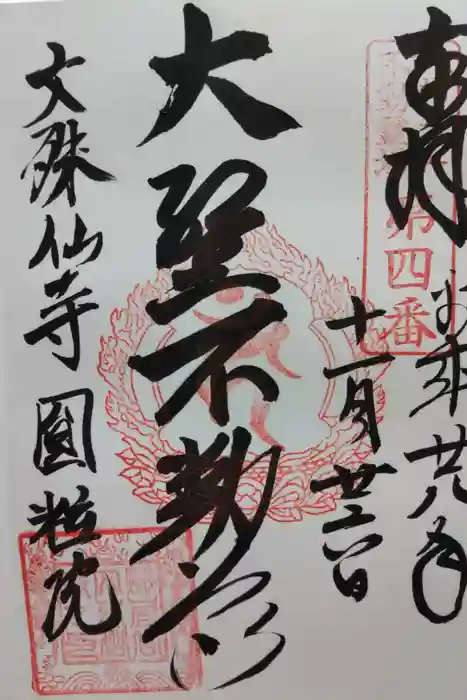 奉拝
平成廿八年
第四番
十一月廿六日
大聖不動
文殊仙寺 圓粒院